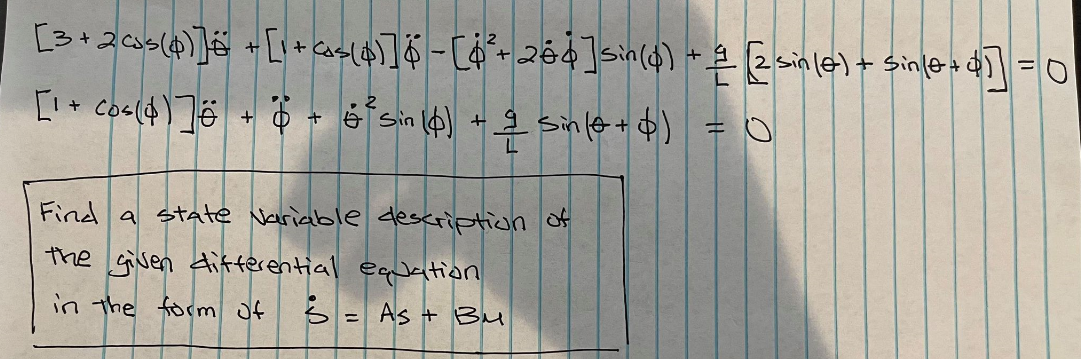 [3 + 2 cos(ϕ)]θ̈ + [1 + cos(ϕ)]ϕ̈ - [ϕ̇² + 2θ̇ϕ̇] sin(ϕ) + g/L [2 sin(θ) + sin(θ + ϕ)] = 0
[1 + cos(ϕ)]θ̈ + ϕ̈ + θ̇² sin(ϕ) + g/L sin(θ + ϕ) = 0
Find a state variable description of
the given differential equation
in the form of ṡ = As + Bu